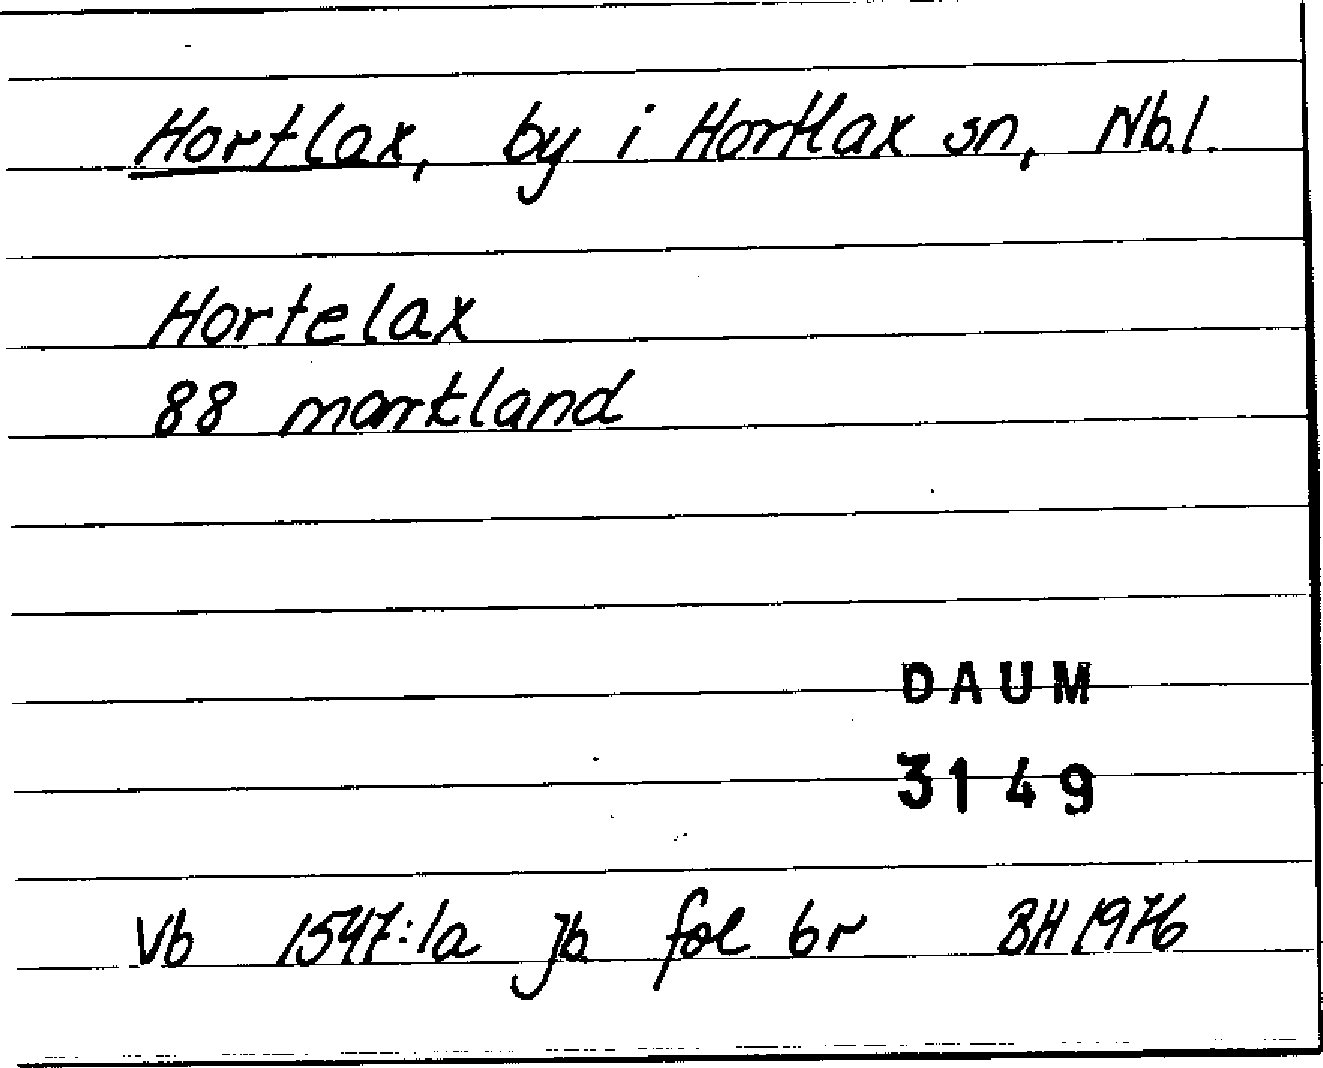 Hortlax, by i Hortlax sn, Nb.l.
Hortelax
88 markland
DAUM
3149
Vb 1547:1a Jb fol 6r BH 1976